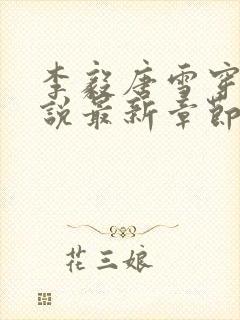 李毅唐雪穿
说最新章節
花三娘